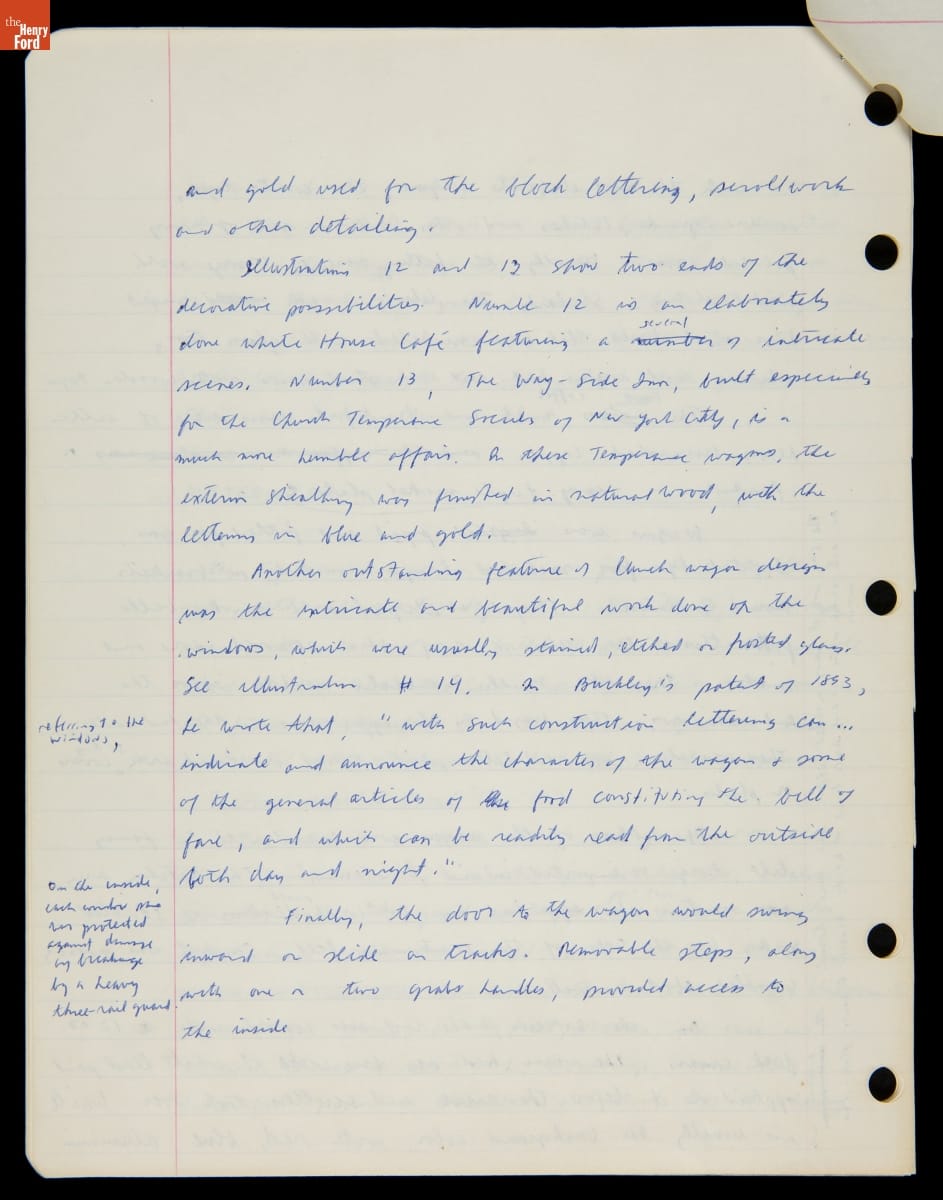 the
Henry
Ford
and gold used for the block lettering, scrollwork
and other detailing.
Illustrations 12 and 13 show two ends of the
decorative possibilities. Number 12 is an elaborately
several
done White House Café featuring a number of intricate
scenes. Number 13, The Way-Side Inn, built especially
for the Church Temperance Society of New York City, is a
much more humble affair. On these Temperance wagons, the
exterior sheathing was finished in natural wood, with the
lettering in blue and gold.
Another outstanding feature of lunch wagon design
was the intricate and beautiful work done on the
windows, which were usually stained, etched or frosted glass.
See illustration # 14. In Buckley's patent of 1893,
referring to the
windows,
he wrote that, "with such construction lettering can...
indicate and announce the character of the wagon & some
of the general articles of food constituting the bill of
fare, and which can be readily read from the outside
both day and night."
On the inside,
each window pane
was protected
against damage
by breakage
by a heavy
three-rail guard.
Finally, the door to the wagon would swing
inward or slide on tracks. Removable steps, along
with one or two grab handles, provided access to
the inside